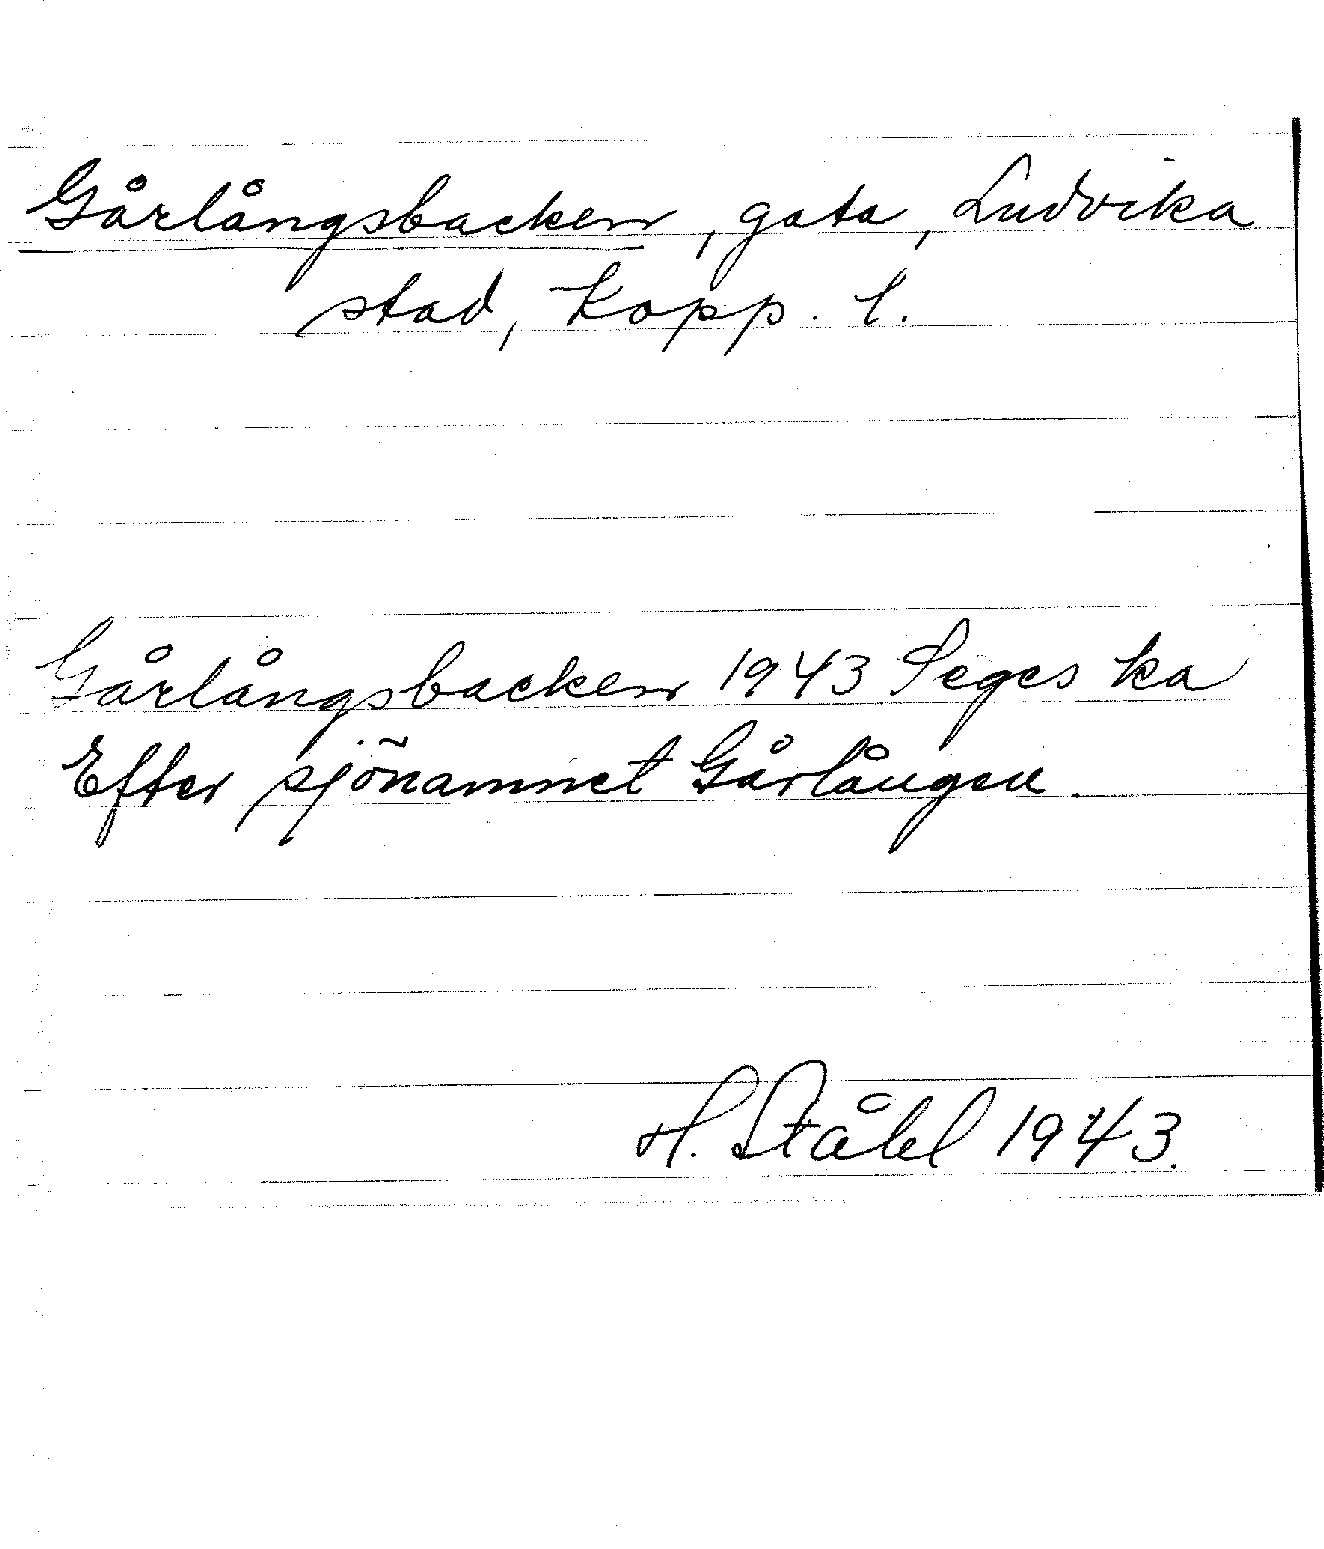 Gårlångsbacken, gata, Ludvika
stad, Kopp. l.
Gårlångsbacken 1943 Seges ka
Efter sjönamnet Gårlången.
H. Ståhl 1943.